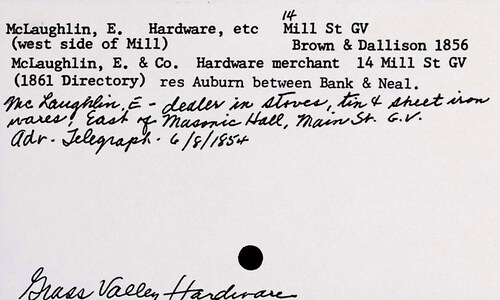 McLaughlin, E. Hardware, etc 14 Mill St GV
(west side of Mill) Brown & Dallison 1856
McLaughlin, E. & Co. Hardware merchant 14 Mill St GV
(1861 Directory) res Auburn between Bank & Neal.
McLaughlin, E - dealer in stoves, tin & sheet iron
wares, East of Masonic Hall, Main St. G.V.
Adv. Telegraph - 6/8/1854
Grass Valley Hardware